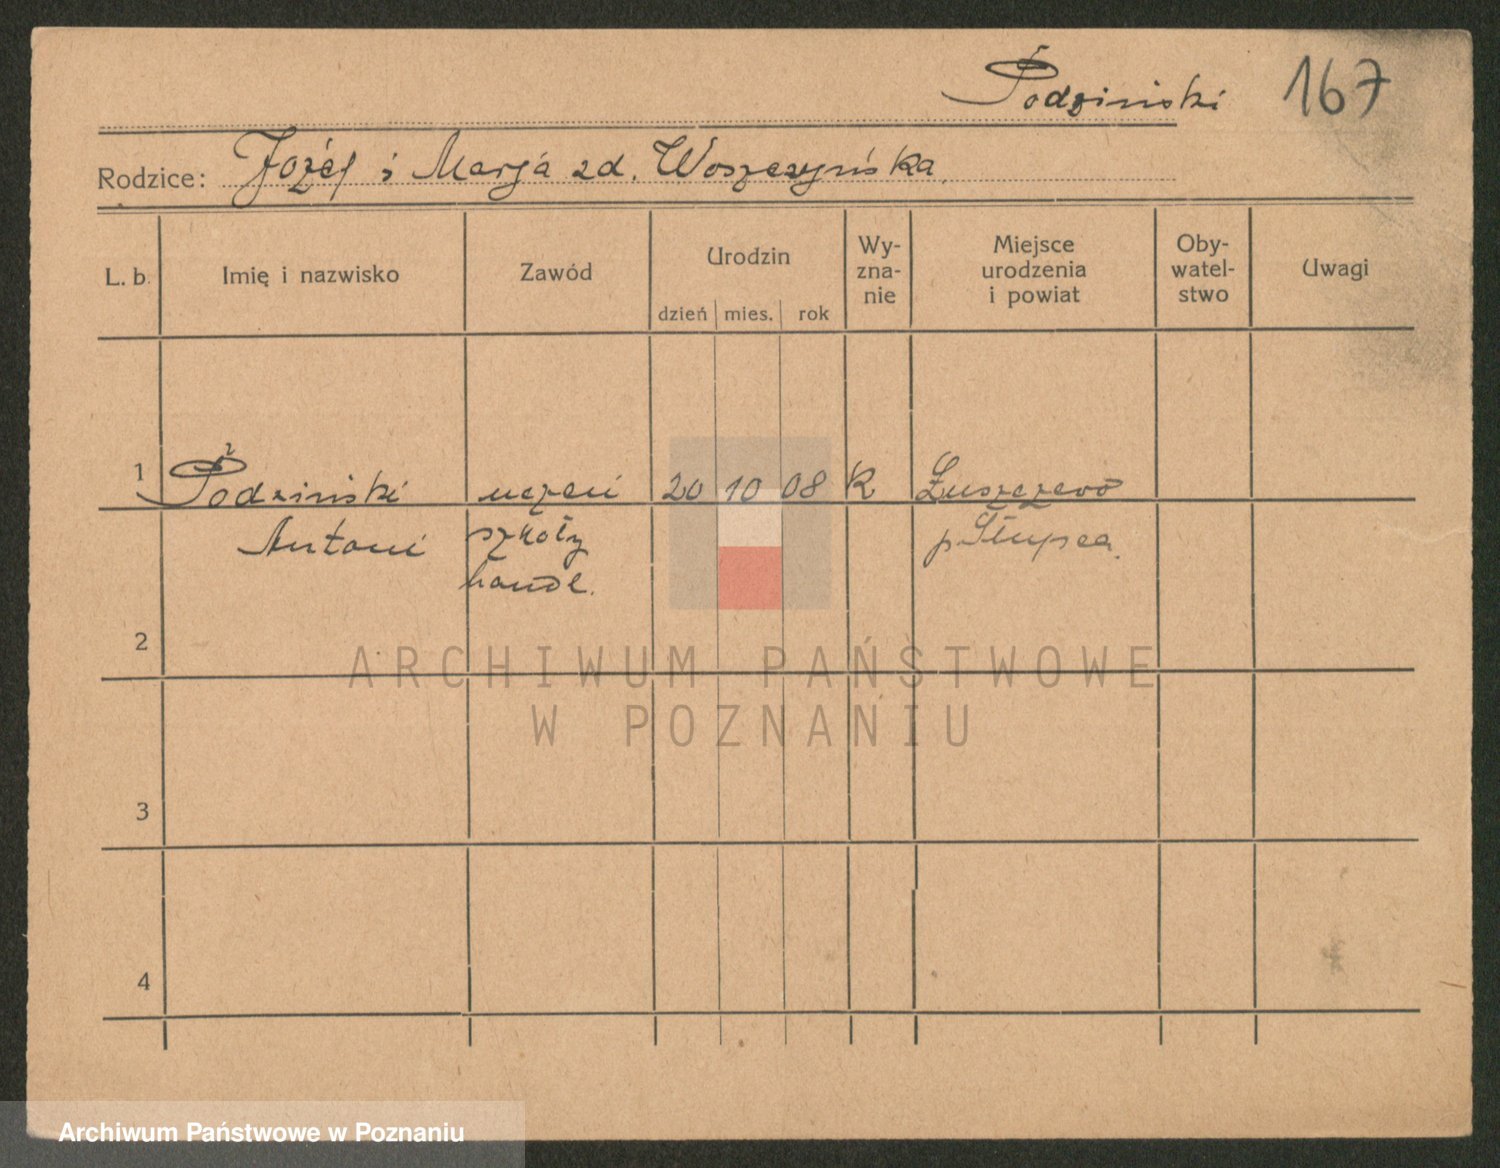 Podziński 167
Rodzice: Józef i Marja zd. Woszczyńska
L. b. Imię i nazwisko Zawód Urodzin dzień mies. rok Wy-zna-nie Miejsce urodzenia i powiat Oby-watel-stwo Uwagi
1 Podziński uczeń 20 10 08 K
Antoni szkoły p. Słupca
handl.
2
3
4
ARCHIWUM PAŃSTWOWE
W POZNANIU
Archiwum Państwowe w Poznaniu